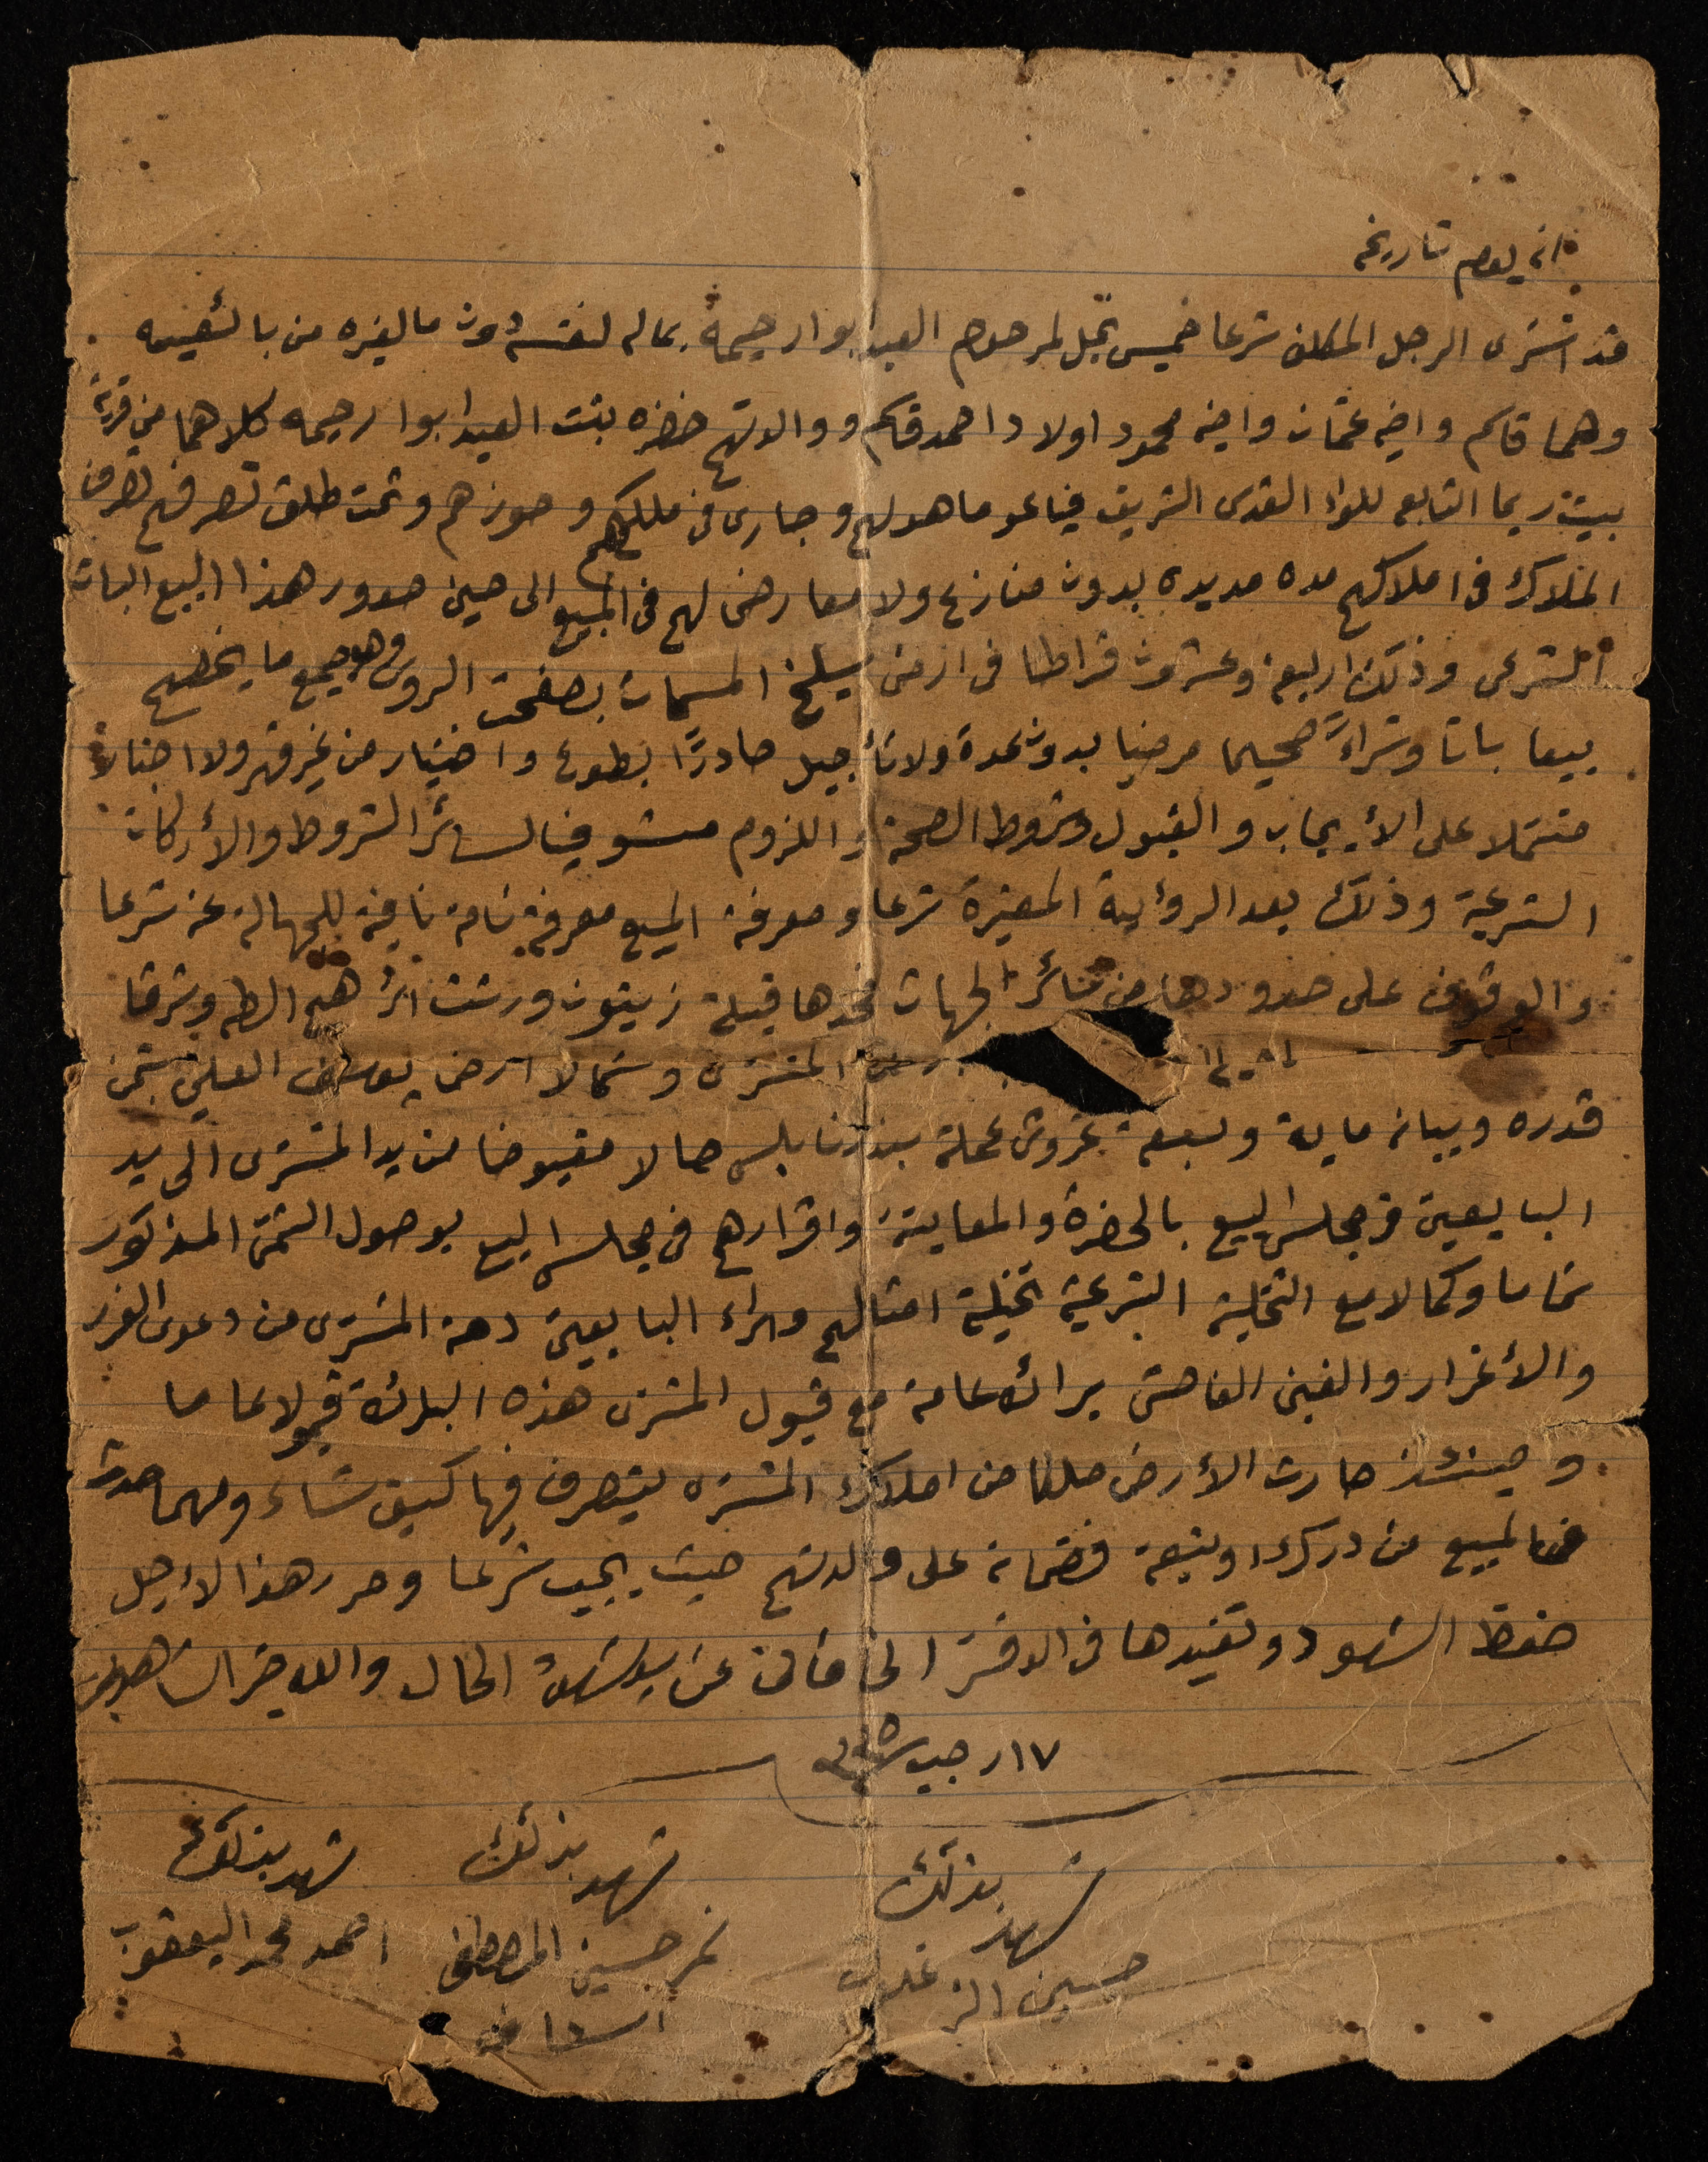 انه يوم تاريخه
قد اشترى الرجل المكلف شرعا خميس نجل لمرحوم العبد ابوا رحيمة بماله لنفسه دون مال غيره من بائعينه
وهما قاسم واخيه عثمان واخيه محمود اولاد احمد قاسم ووالدتهم خضره بنت العبد ابوا رحيمه كلاهما من قرية
بيت ريما التابعه للواء القدس الشريف فباعو ما هو لهم وجارى فى ملكهم وحوزهم وتحت طلق تصرفهم تصرف
الملاك فى املاكهم مده مديده بدون منازع ولا معارض لهم فى المبيع الى حين صدور هذا البيع البات
الشرعى وذلك اربعة وعشرون قراطا فى ارض المسمات بصفحت الروس وهو جميع ما يخصهم
بيعا باتا وشراءً صحيحا مرضيا بدون عدة ولا تأجيل صادرًا بطوع واختيار من غير قهر ولا اجبار
مشتملا على الأيجاب والقبول وشروط الصحة واللزوم مستوفيا لسائر الشروط والأركان
الشرعية وذلك بعد الرؤية المعتبرة شرعا ومعرفة المبيع معرفة تامة نافية للجهالة عنه شرعا
والوقوف على حدودها من سائر الجهات فحدها قبلة زيتون ورثت ابراهيم الطه وشرقا
المشترى وشمالا ارض يوسف العلي بثمن
قدره وبيانه ماية وسبعة غروش عملة بندر نابلس حالا مقبوضا من يد المشترى الى يد
البايعين فى مجلس البيع بالحضرة والمعاينة واقرارهم فى مجلس البيع بوصول الثمن المذكور
تماما وكمالا مع التخلية الشرعية تخلية امثالهم وبراء البايعين ذمة المشترى من دعوى الغرر
والأغرار والغبن الفاحش برائة عامة مع قبول المشترى هذه البرائة قبولا عاما
وحينئذ صارت الأرض ملكا من املاك المشتره يتصرف فيها كيف شاء ومهما حدث
فى المبيع من درك او تبعة فضمانه على والدتهم حيث يجيب شرعا وحرر هذا لاءجل
حفظ الشهود وتقيدها فى الدفتر الخاقان عن يد شهود الحال والله خير الشاهدين
١٧ رجب سنة
شهد بذلك
حسين
شهد بذلك
نمر حسين المصطفى
شهد بذلك
احمد محمد اليعقوب